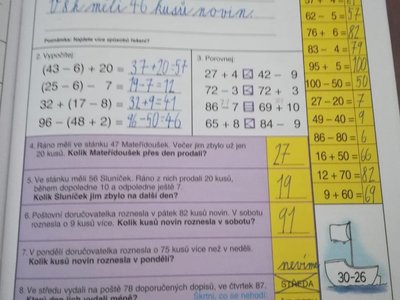 V šk měli 46 kusů novin.
Poznámka: Najdete více způsobů řešení?
2. Vypočítej.
(43 – 6) + 20 = 37+20=57
(25 – 6) – 7 = 19-7=12
32 + (17 – 8) = 32+9=41
96 – (48 + 2) = 96-50=46
3. Porovnej.
27 + 4 < 42 – 9
72 – 3 < 72 + 3
86 – 7 69 + 10
65 + 8 84 – 9
62 – 5 = 57
76 + 6 = 82
83 – 4 = 79
95 + 5 = 100
100 – 50 = 50
27 – 20 = 7
49 – 40 = 9
86 – 80 = 6
16 + 50 = 66
12 + 70 = 82
9 + 60 = 69
4. Ráno měli ve stánku 47 Mateřídoušek. Večer jim zbylo už jen
20 kusů. Kolik Mateřídoušek přes den prodali?
27
5. Ve stánku měli 56 Sluníček. Ráno z nich prodali 20 kusů,
během dopoledne 10 a odpoledne ještě 7.
Kolik Sluníček jim zbylo na další den?
19
6. Poštovní doručovatelka roznesla v pátek 82 kusů novin. V sobotu
roznesla o 9 kusů více. Kolik novin roznesla v sobotu?
91
7. V pondělí doručovatelka roznesla o 75 kusů více než v neděli.
Kolik novin roznesla v pondělí?
nevíme
8. Ve středu vydali na poště 78 doporučených dopisů, ve čtvrtek 87.
Který den jich vydali méně? Škrtni, co se nehodí.
STŘEDA
30-26